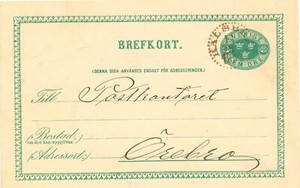 BREFKORT.
(DENNA SIDA ANVÄNDES ENDAST FÖR ADRESSERINGEN.)
Till Postkontoret
(Bostad,
om den kan uppgifvas)
(Adressort:) Örebro